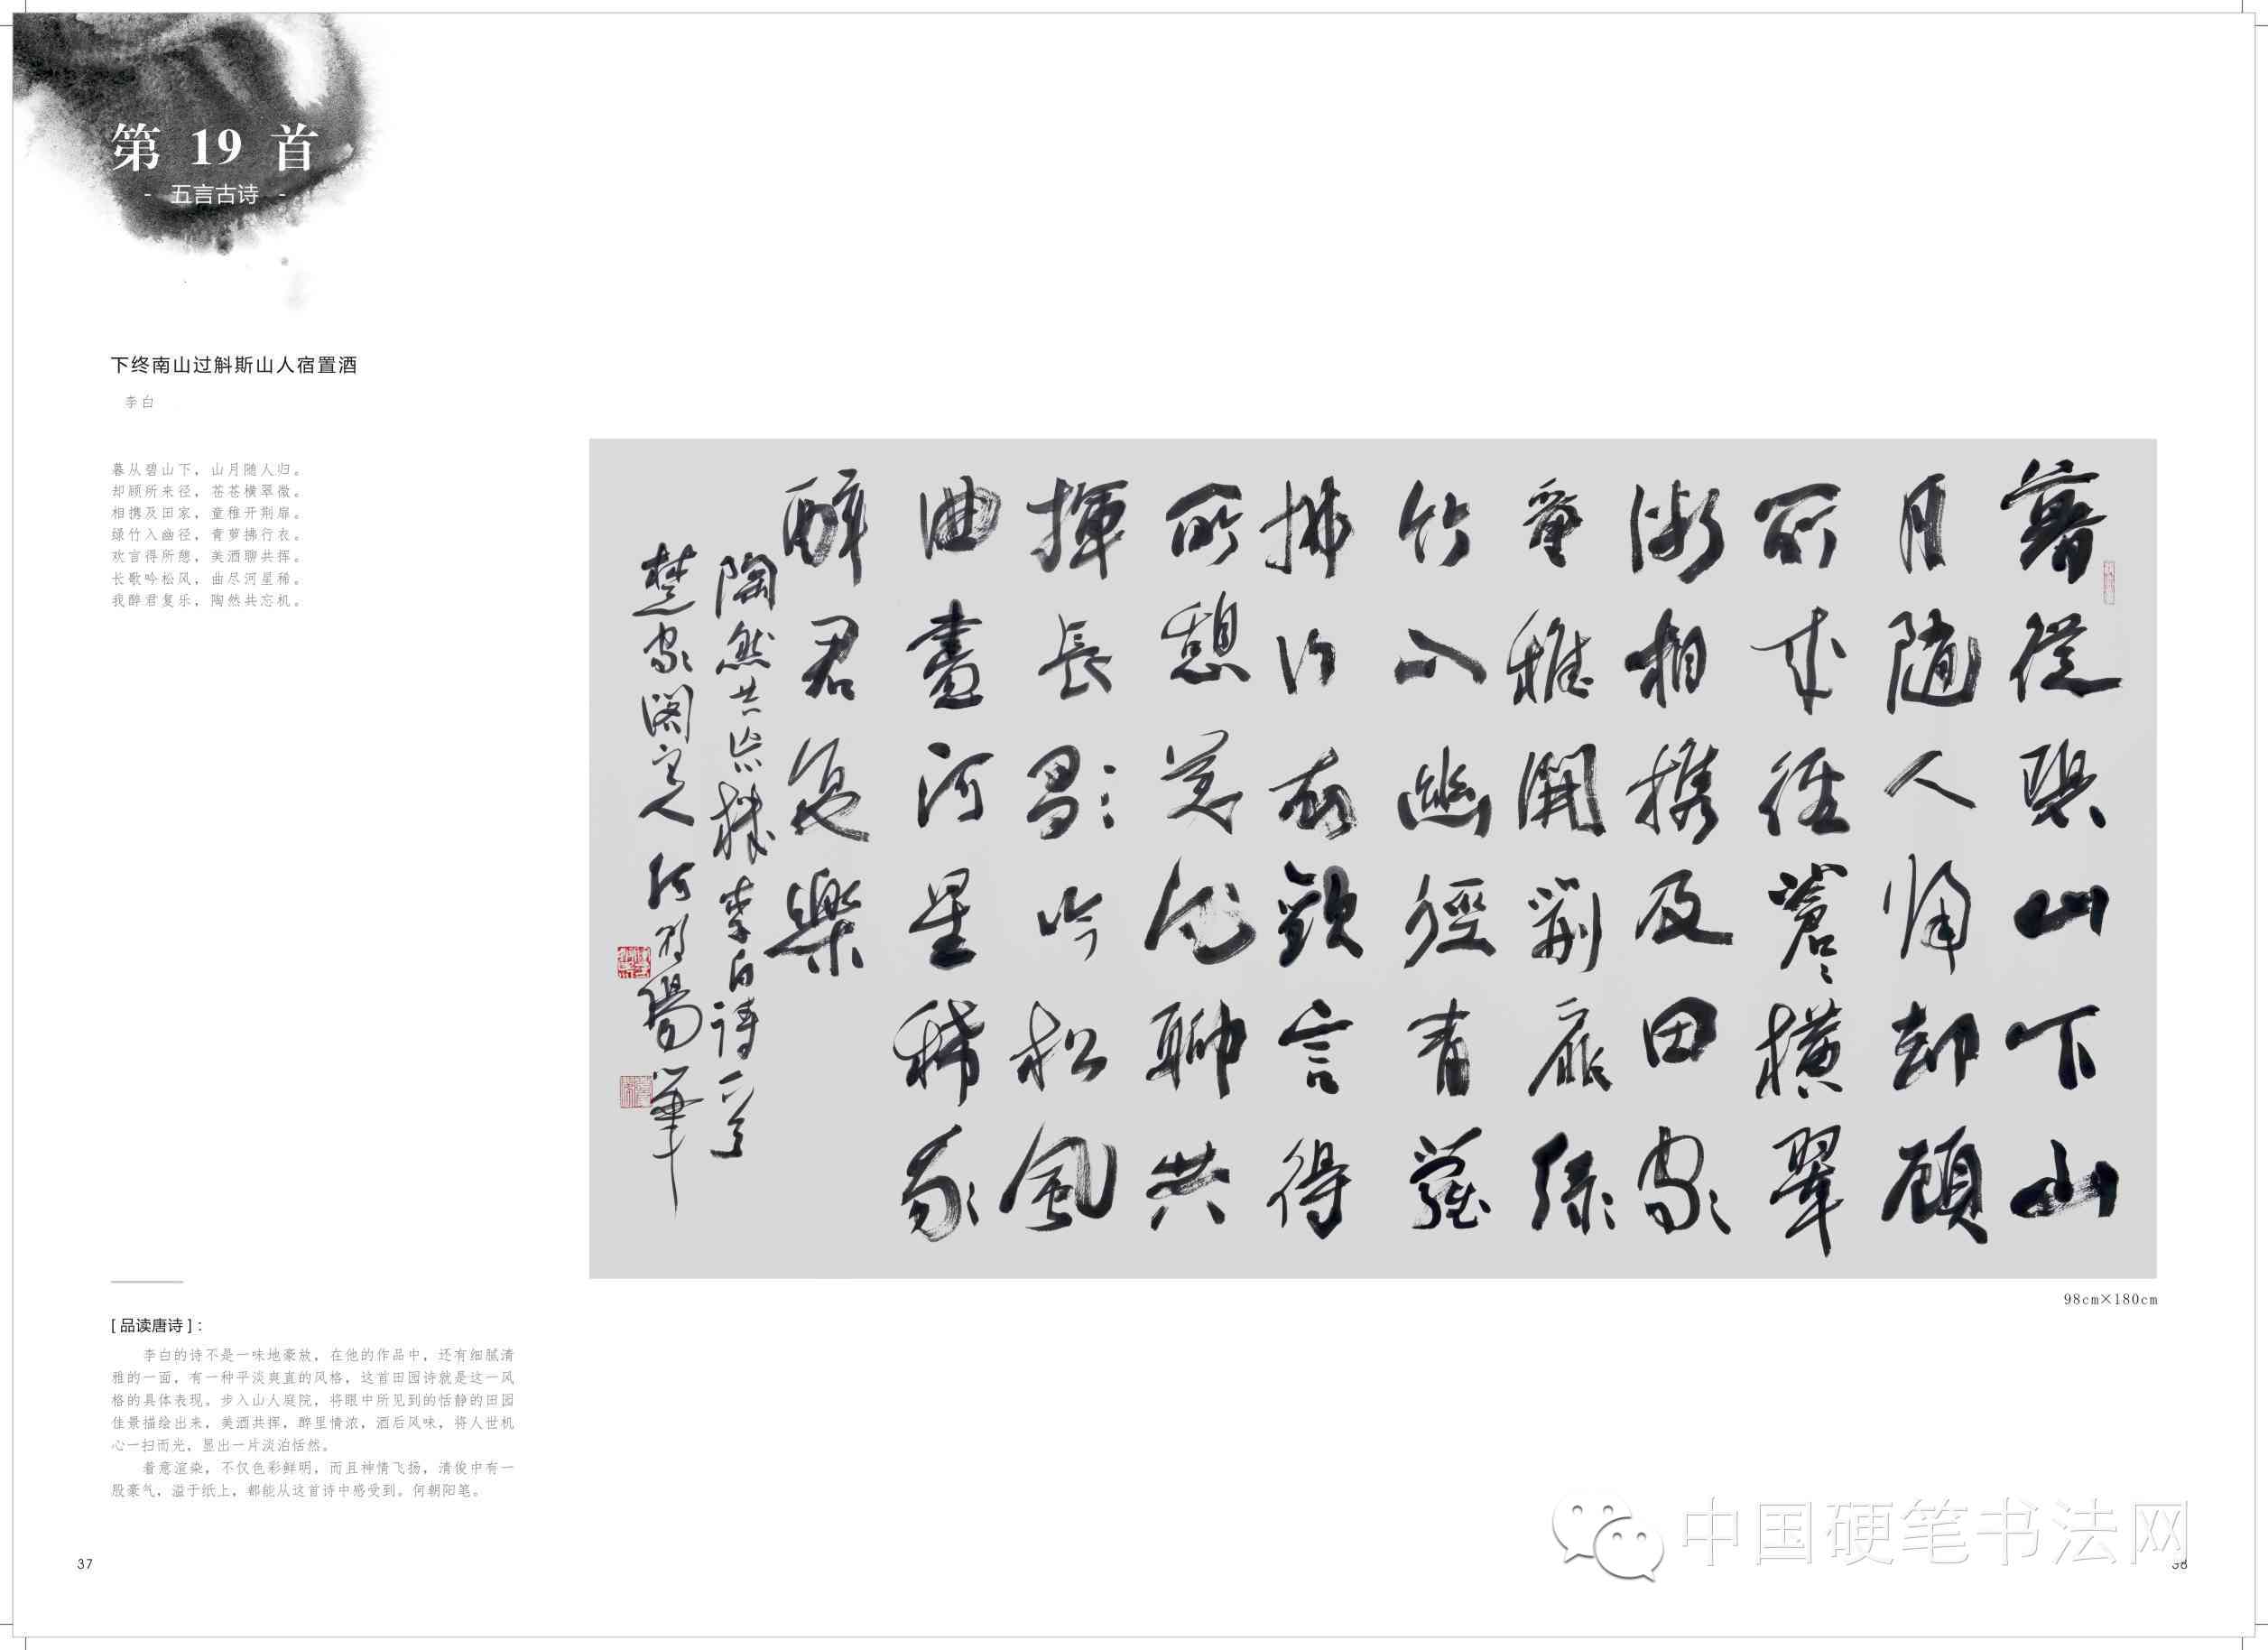 第 19 首
- 五言古诗 -
下终南山过斛斯山人宿置酒
李白
暮从碧山下，山月随人归。
却顾所来径，苍苍横翠微。
相携及田家，童稚开荆扉。
绿竹入幽径，青萝拂行衣。
欢言得所憩，美酒聊共挥。
长歌吟松风，曲尽河星稀。
我醉君复乐，陶然共忘机。
暮從碧山下山
月隨人歸却顧
所來徑蒼々橫翠
微相攜及田家
童稚開荊扉綠
竹入幽徑青蘿
拂行衣歡言得
所憩美酒聊共
揮長歌吟松風
曲盡河星稀我
醉君復樂
陶然共忘機李白詩一首
楚家閣主人何朝陽筆
98cm×180cm
[ 品读唐诗 ]：
李白的诗不是一味地豪放，在他的作品中，还有细腻清
雅的一面，有一种平淡爽直的风格，这首田园诗就是这一风
格的具体表现。步入山人庭院，将眼中所见到的恬静的田园
佳景描绘出来，美酒共挥，醉里情浓，酒后风味，将人世机
心一扫而光，显出一片淡泊恬然。
着意渲染，不仅色彩鲜明，而且神情飞扬，清俊中有一
股豪气，溢于纸上，都能从这首诗中感受到。何朝阳笔。
中国硬笔书法网
37
38